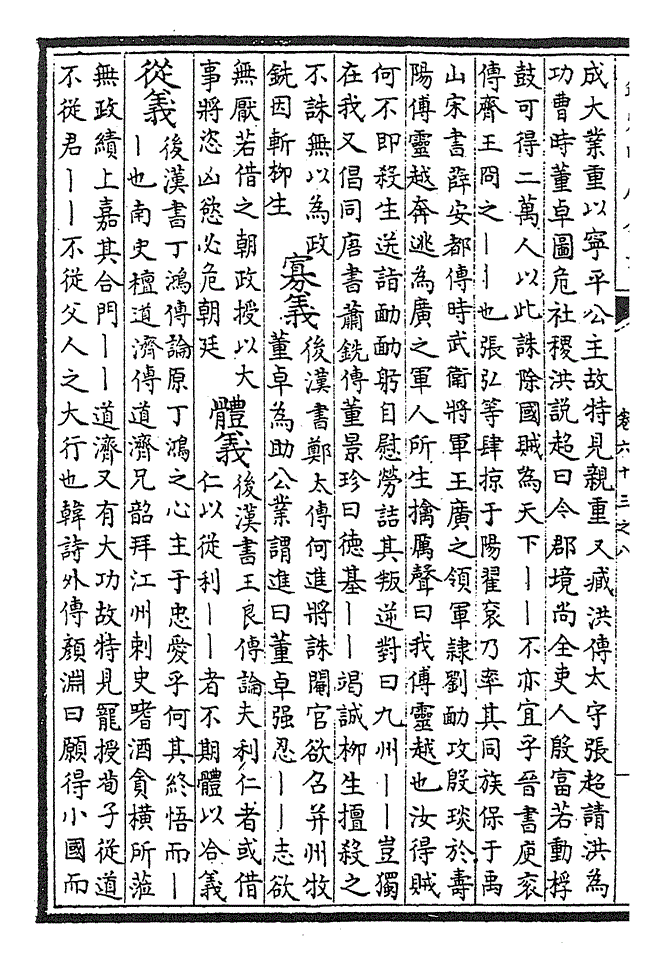 卷六十三之八
成大業重以寧平公主故特見親重又臧洪傳太守張超請洪為
功曹時董卓圖危社稷洪說超曰今郡境尚全吏人殷富若動桴
鼓可得二萬人以此誅除國賊為天下丨丨不亦宜乎晉書庾袞
傳齊王冏之丨丨也張弘等肆掠于陽翟袞乃率其同族保于禹
山宋書薛安都傳時武衛將軍王廣之領軍隸劉勔攻殷琰於壽
陽傅靈越奔逃為廣之軍人所生擒厲聲曰我傅靈越也汝得賊
何不即殺生送詣勔勔躬自慰勞詰其叛逆對曰九州丨丨豈獨
在我又倡同唐書蕭銑傳董景珍曰徳基丨丨竭誠柳生擅殺之
不誅無以為政
銑因斬柳生
寡義
後漢書鄭太傳何進將誅閹官欲召并州牧
董卓為助公業謂進曰董卓强忍丨丨志欲
無厭若借之朝政授以大
事將恣凶慾必危朝廷
體義
後漢書王良傳論夫利仁者或借
仁以從利丨丨者不期體以合義
從義
後漢書丁鴻傳論原丁鴻之心主于忠愛乎何其終悟而丨
丨也南史檀道濟傳道濟兄韶拜江州刺史嗜酒貪橫所蒞
無政績上嘉其合門丨丨道濟又有大功故特見寵授荀子從道
不從君丨丨不從父人之大行也韓詩外傳顏淵曰願得小國而